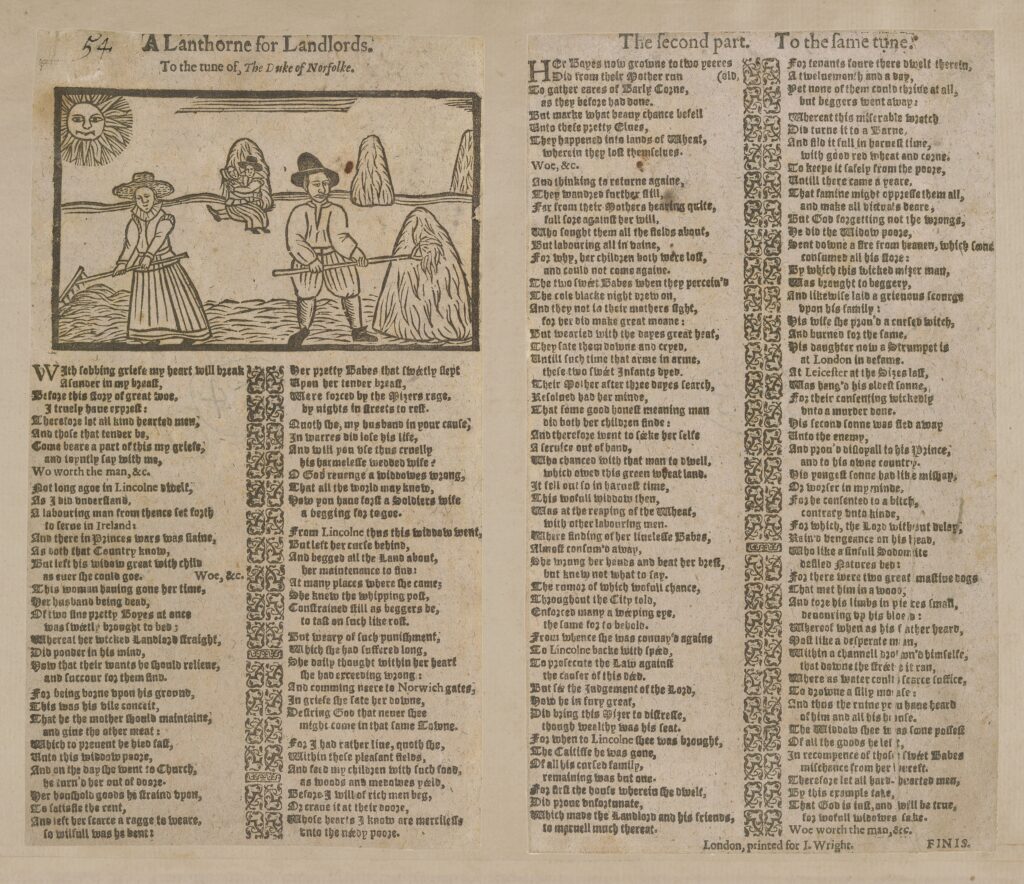 54
A Lanthorne for Landlords.
To the tune of, The Duke of Norfolke.
With sobbing griefe my heart will break
Asunder in my breast,
Before this story of great woe,
I truely haue exprest:
Therefore let all kind hearted men,
And those that tender be,
Come beare a part of this my griefe,
and ioyntly say with me,
Wo worth the man, &c.
Not long agoe in Lincolne dwelt,
As I did vnderstand,
A labouring man from thence set forth
to serue in Ireland:
And there in Princes wars was slaine,
As doth that Country know,
But left his widow great with child
as euer she could goe. Woe, &c.
This woman hauing gone her time,
Her husband being dead,
Of two fine pretty Boyes at once
was sweetly brought to bed:
Whereat her wicked Landlord straight,
Did ponder in his mind,
How that their wants he should relieue,
and succour for them find.
For being borne vpon his ground,
This was his vile conceit,
That he the mother should maintaine,
and giue the other meat:
Which to preuent he hied fast,
Unto this widow poore,
And on the day she went to Church,
he turn'd her out of doore.
Her houshold goods he straind vpon,
To satisfie the rent,
And left her scarce a ragge to weare,
so wilfull was he bent:
Her pretty Babes that sweetly slept
Upon her tender breast,
Were forced by the Mizers rage,
by nights in streets to rest.
Quoth she, my husband in your cause,
In warres did lose his life,
And will you vse thus cruelly
his harmelesse wedded wife?
O God reuenge a widdowes wrong,
That all the world may know,
How you haue forst a Soldiers wife
a begging for to goe.
From Lincolne thus this widdow went,
But left her curse behind,
And begged all the Land about,
her maintenance to find:
At many places where she came;
She knew the whipping post,
Constrained still as beggers be,
to tast on such like rost.
But weary of such punishment,
Which she had suffered long,
She daily thought within her heart
she had exceeding wrong:
And comming neere to Norwich gates,
In griefe she sate her downe,
Desiring God that neuer shee
might come in that same Towne.
For I had rather liue, quoth she,
Within these pleasant fields,
And feed my children with such food,
as woods and medowes yeeld,
Before I will of rich men beg,
Or craue it at their doore,
Whose hearts I know are mercilesse
vnto the needy poore.
The second part. To the same tune.
HEr Boyes now growne to two yeeres (old,
Did from their Mother run
To gather eares of Barly Corne,
as they before had done.
But marke what heauy chance befell
Unto these pretty Elues,
They happened into lands of Wheat,
wherein they lost themselues.
Woe, &c.
And thinking to returne againe,
They wandred further still,
Far from their Mothers hearing quite,
full sore against her will,
Who sought them all the fields about,
But labouring all in vaine,
For why, her children both were lost,
and could not come againe.
The two sweet Babes when they perceiu'd
The cole blacke night drew on,
And they not in their mothers sight,
for her did make great moane:
But wearied with the dayes great heat,
They sate them downe and cryed,
Untill such time that arme in arme,
these two sweet Infants dyed.
Their Mother after three dayes search,
Resolued had her minde,
That some good honest meaning man
did both her children finde:
And therefore went to seeke her selfe
A seruice out of hand,
Who chanced with that man to dwell,
which owed this green wheat land.
It fell out so in haruest time,
This wofull widdow then,
Was at the reaping of the Wheat,
with other labouring men.
Where finding of her liuelesse Babes,
Almost consum'd away,
She wrung her hands and beat her brest,
but knew not what to say.
The rumor of which wofull chance,
Throughout the City told,
Enforced many a weeping eye,
the same for to behold.
From whence she was conuay'd againe
To Lincolne backe with speed,
To prosecute the Law against
the causer of this deed.
But see the Judgement of the Lord,
How he in fury great,
Did bring this Mizer to distresse,
though wealthy was his seat.
For when to Lincolne shee was brought,
The Caitiffe he was gone,
Of all his cursed family,
remaining was but one.
For first the house wherein she dwelt,
Did proue vnfortunate,
Which made the Landlord and his friends,
to maruell much thereat.
For tenants foure there dwelt therein,
A twelue month and a day,
Yet none of them could thriue at all,
but beggers went away:
Whereat this miserable wretch
Did turne it to a Barne,
And fild it full in haruest time,
with good red wheat and corne.
To keepe it safely from the poore,
Untill there came a yeare,
That famine might oppresse them all,
and make all victuals deare,
But God forgetting not the wrongs,
He did the Widow poore,
Sent downe a fire from heauen, which soone
consumed all his store:
By which this wicked mizer man,
Was brought to beggery,
And likewise laid a grieuous scourge
vpon his family:
His wife she prou'd a cursed witch,
And burned for the same.
His daughter now a Strumpet is
at London in defame.
At Leicester at the Sizes last,
Was hang'd his eldest sonne,
For their consenting wickedly
vnto a murder done.
His second sonne was fled away
Unto the enemy,
And prou'd disloyall to his Prince,
and to his owne country.
His yongest sonne had like mishap,
Or worser in my minde,
For he consented to a bitch,
contrary vnto kinde,
For which, the Lord without delay,
Rain'd vengeance on his head,
Who like a sinfull Sodomite
defiled Natures bed:
For there were two great mastiue dogs
That met him in a wood,
And tore his limbs in pieces small,
deuouring vp his blood:
Whereof when as his father heard,
Most like a desperate man,
Within a channell drown'd himselfe,
that downe the street it ran,
Where as water could scarce suffice,
To drowne a silly mouse:
And thus the ruine you haue heard
of him and all his house.
The Widdow shee was some possest
Of all the goods he left,
In recompence of those sweet Babes
mischance from her bereft.
Therefore let all hard-hearted men,
By this example take,
That God is iust, and will be true,
for wofull widowes sake.
Woe worth the man, &c.
London, printed for I. Wright. FINIS.